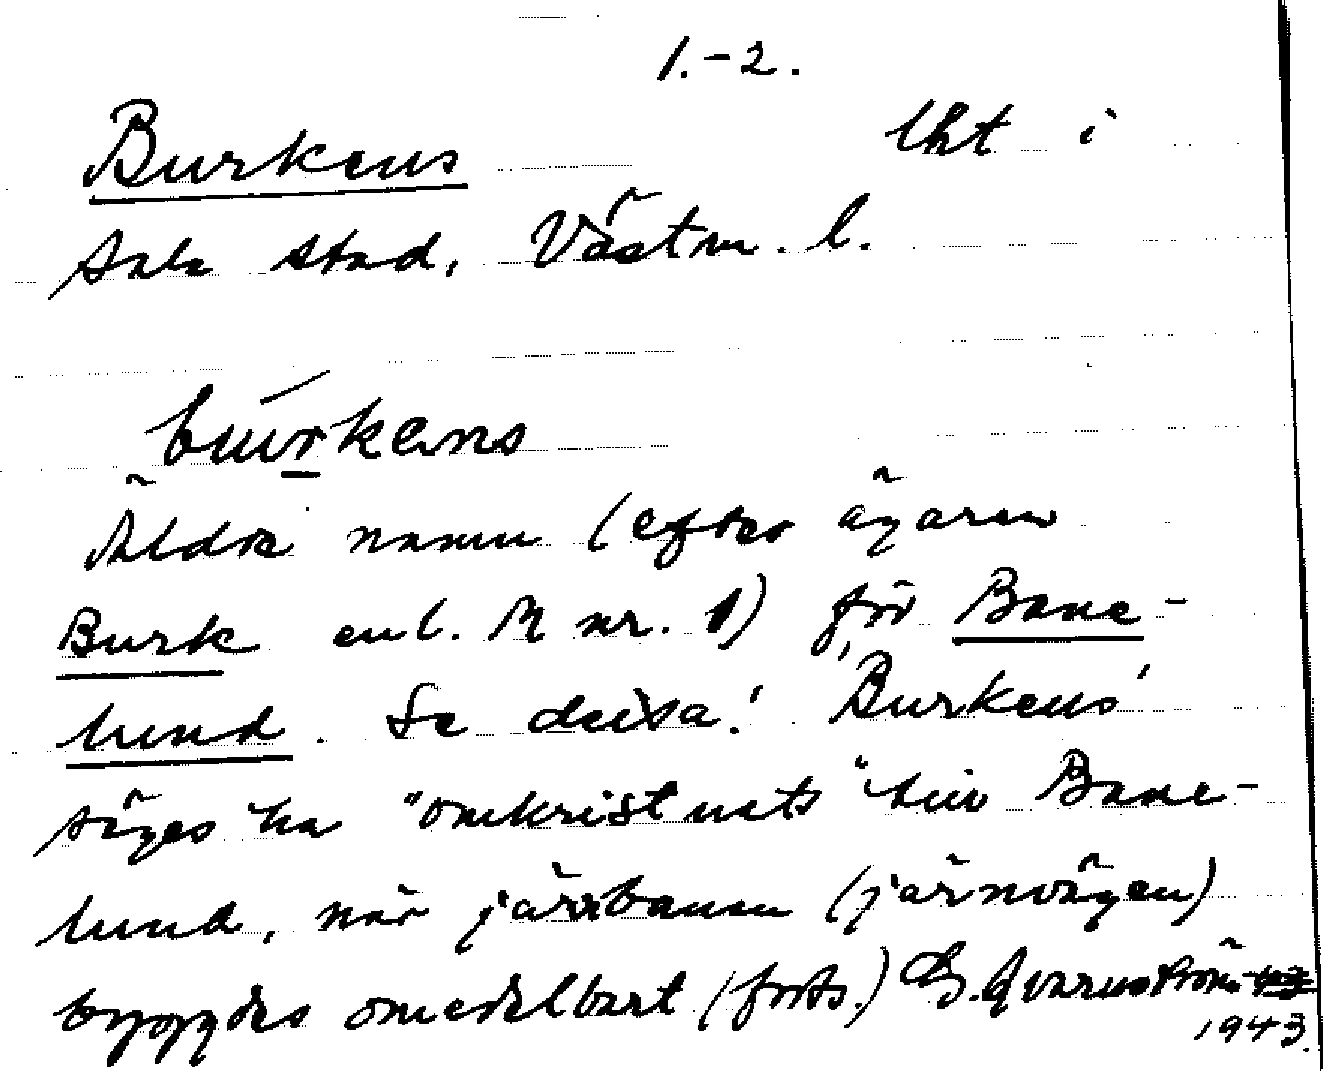 1.-2.
Burkens lht i
Sala stad, Västm. l.
burkens
Äldre namn (efter ägaren
Burk enl. M nr. 1) för Bane-
lund. Se detta! 'Burkens'
säges ha "omkristnats" till Bane-
lund, när järnbanan (järnvägen)
byggdes omedelbart (forts.) G. Qvarnström
1943.